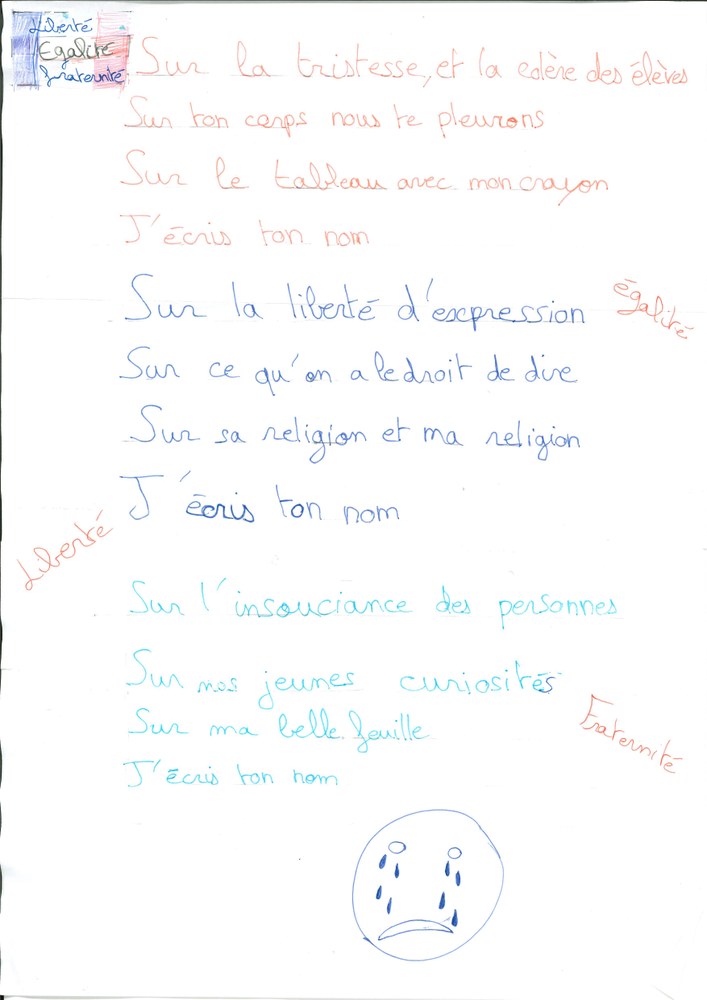 Liberté
Egalité
fraternité
Sur la tristesse, et la colère des élèves
Sur ton corps nous te pleurons
Sur le tableau avec mon crayon
J'écris ton nom
Sur la liberté d'expression
égalité
Sur ce qu'on a le droit de dire
Sur sa religion et ma religion
J'écris ton nom
Liberté
Sur l'insouciance des personnes
Sur nos jeunes curiosités
Sur ma belle feuille
Fraternité
J'écris ton nom